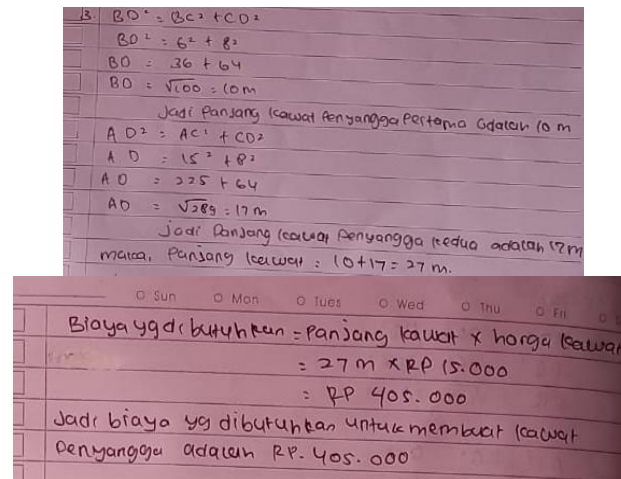 3. BD² = BC² + CD²
BD² = 6² + 8²
BD = 36 + 64
BD = √100 = 10 m
Jadi Panjang kawat Penyangga Pertama adalah 10 m
AD² = AC² + CD²
AD = 15² + 8²
AD = 225 + 64
AD = √289 = 17 m
Jadi Panjang kawat Penyangga kedua adalah 17 m
maka, Panjang kawat = 10 + 17 = 27 m.
Sun Mon Tues Wed Thu Fri
Biaya yg dibutuhkan = Panjang kawat x harga kawat
= 27 m x RP 15.000
= RP 405.000
Jadi biaya yg dibutuhkan untuk membuat kawat
Penyangga adalah RP. 405.000